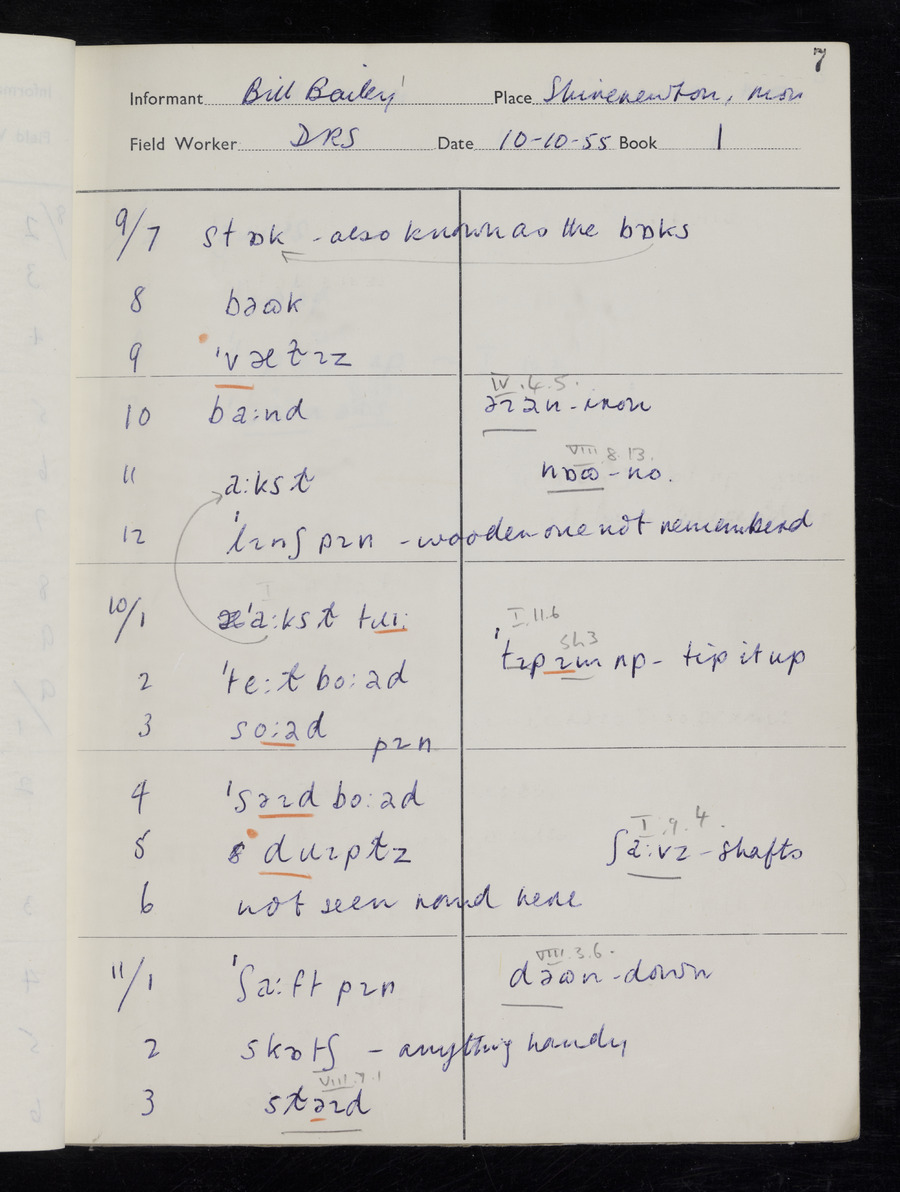 7
Informant Bill Bailey Place Shirenewton, Mon
Field Worker DRS Date 10-10-55 Book 1
9/7 stɒk - also known as the bɒks
8 bəʊk
9 'væt̮ɪz
IV.4.5.
10 ba:nd əɪən - iron
VIII 8.13.
11 a:kst nɒʊ - no.
12 'lɪnʃpɪn - wooden one not rememberd
I
10/1 'a:kst tɹi: I.11.6
sh3
'tɪpɪm np - tip it up
2 'te:tbo:əd
3 so:əd
pɪn
4 'səɪdbo:əd
I.9.4.
5 dɹɪptz ʃa:vz - shafts
6 not seen round here
VIII.3.6.
11/1 'ʃa:ftpɪn dəʊn - down
2 skɒtʃ - anything handy
VIII.7.1
3 stəɪd